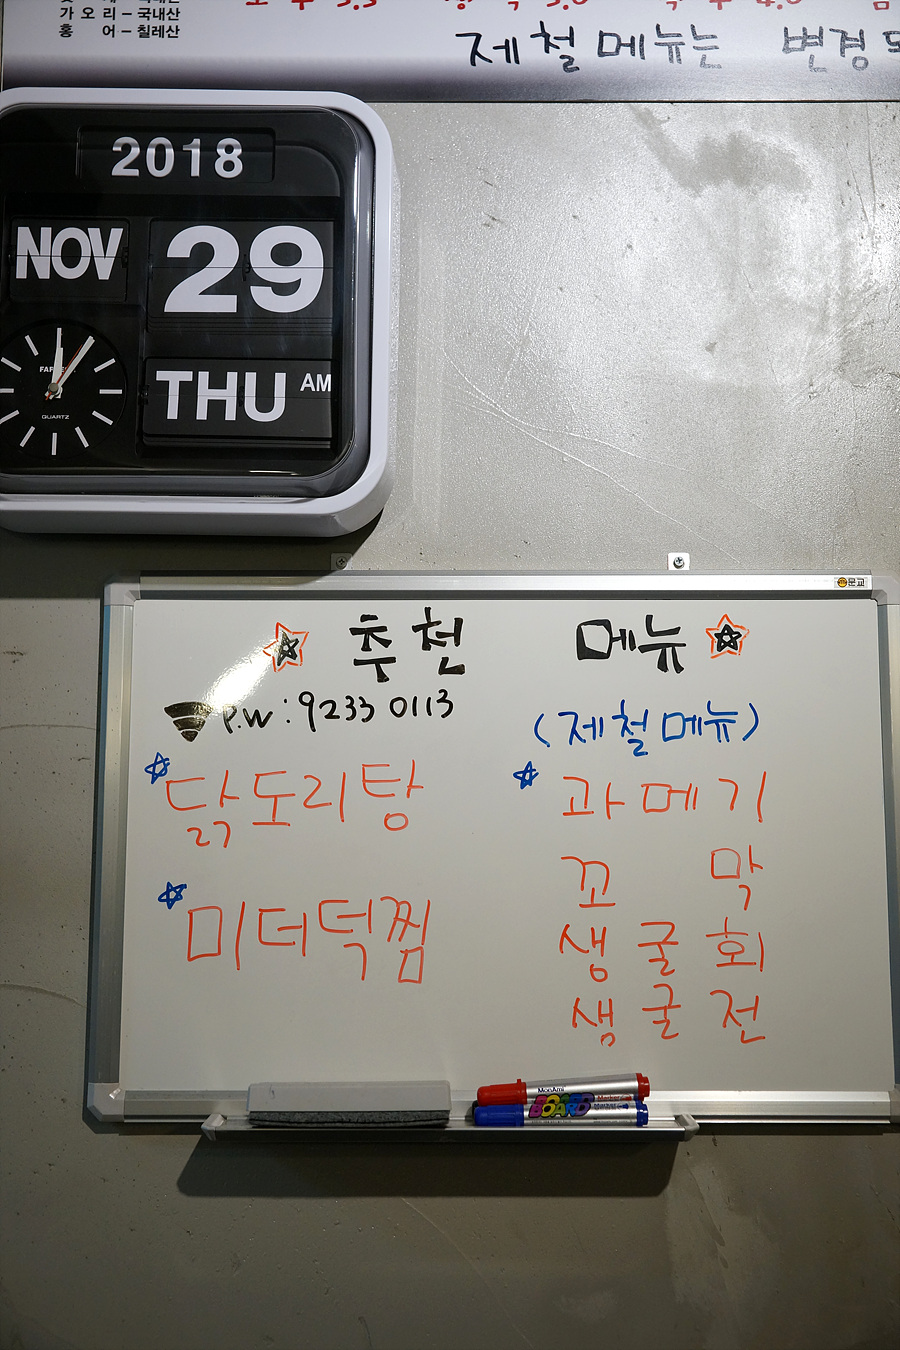 가오리-국내산
홍 어-칠레산
제철메뉴는 변경
2018
NOV 29
THU AM
QUARTZ
문교
추천 메뉴
P.W : 9233 0113
(제철메뉴)
닭도리탕
과메기
꼬 막
미더덕찜
생굴회
생굴전
MonAmi
BOARD